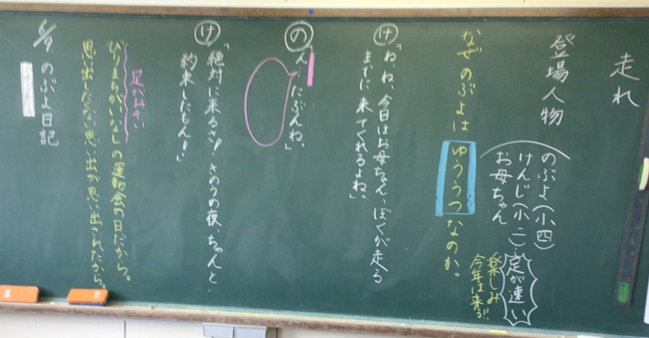 走れ
登場人物
のぶよ(小四)
けんじ(小二)
お母ちゃん
足が速い
楽しみ
今年は来る!!
なぜのぶよはゆううつなのか。
け「ね、ね、今日はお母ちゃん、ぼくが走る
までに来てくれるよね。」
の「ん、たぶんね。」
け「絶対に来るさ!きのうの夜、ちゃんと
約束したもん!」
足がおそい
びりまちがいなしの運動会の日だから。
思い出したくない思い出が思い出されたから。
のぶよ日記